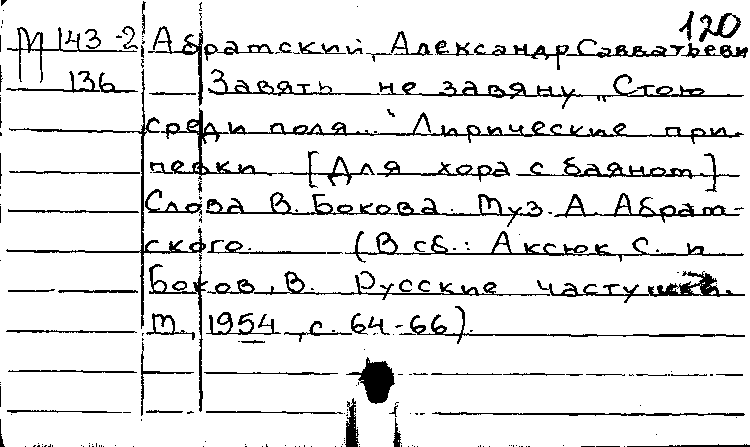 120
М 143-2 Абратский, Александр Савватьеви
136 Завять не завяну „Стою
среди поля..." Лирические при-
певки. [Для хора с баяном.]
Слова В. Бокова. Муз. А. Абрат-
ского. (В сб.: Аксюк, С. и
Боков, В. Русские частушки.
М., 1954, с. 64-66).